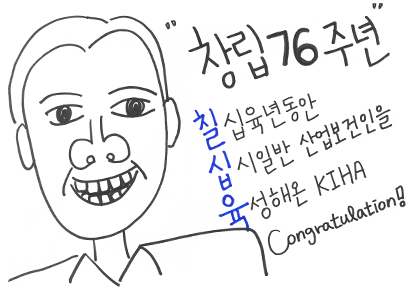 "창립 76 주년"
칠십육년동안
십시일반 산업보건인을
육성해온 KIHA
Congratulation!